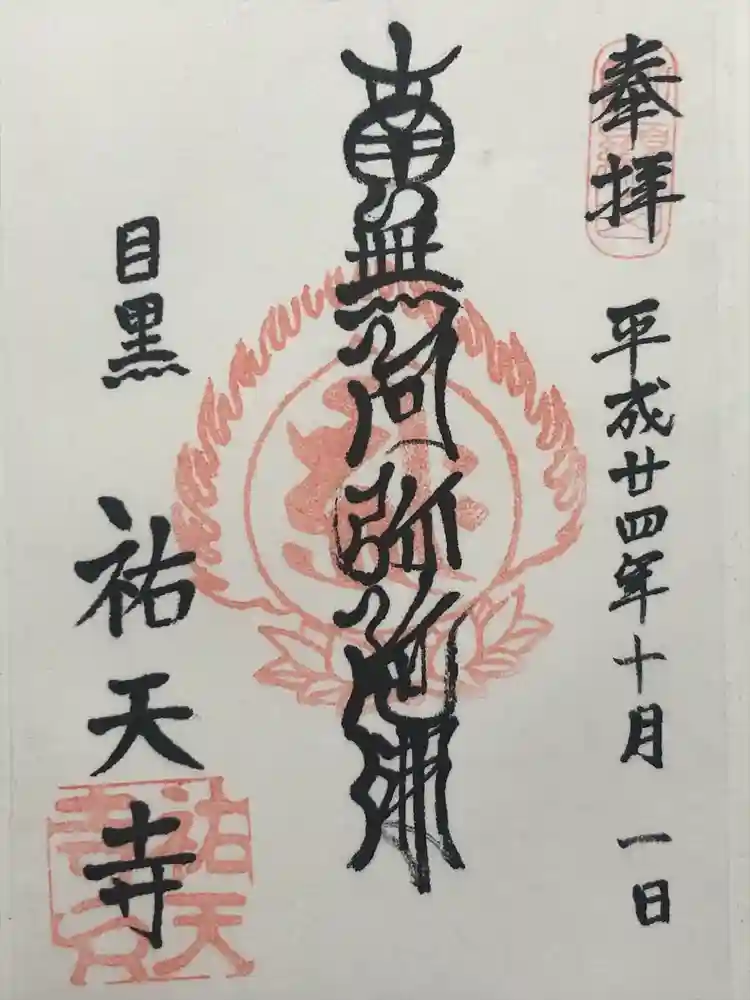 奉拝
平成廿四年十月一日
南無阿弥陀佛
目黒
祐天寺
祐天
寺印